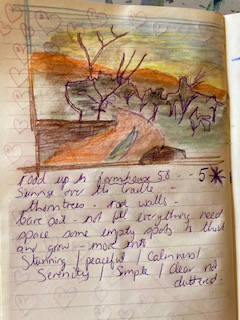 road up to farmhouse 58 -- 5*
Sunrise over the
trees - red walls -
bare not fill everything need
space some empty spots to think
and grow - move into.
Stunning / peaceful / Calmness/
Serenity / Simple / Clear not
cluttered -